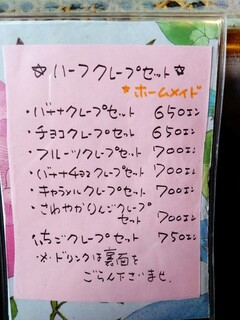 ☆ハーフクレープセット☆
★ホームメイド
・バナナクレープセット 650エン
・チョコクレープセット 650エン
・フルーツクレープセット 700エン
・バナナチョコクレープセット 700エン
・キャラメルクレープセット 700エン
・さわやかりんごクレープ
セット 700エン
・いちごクレープセット 750エン
・※・ドリンクは裏面を
ごらん下さいませ。